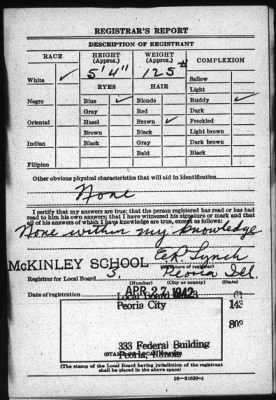 REGISTRAR'S REPORT
DESCRIPTION OF REGISTRANT
RACE
HEIGHT (Approx.)
WEIGHT (Approx.)
COMPLEXION
5' 4"
125 #
White ✓
Sallow
Light
EYES
HAIR
Negro
Blue ✓
Blonde
Ruddy ✓
Gray
Red
Dark
Oriental
Hazel
Brown ✓
Freckled
Brown
Black
Light brown
Indian
Black
Gray
Dark brown
Bald
Black
Filipino
Other obvious physical characteristics that will aid in identification
None
I certify that my answers are true; that the person registered has read or has had
read to him his own answers; that I have witnessed his signature or mark and that
all of his answers of which I have knowledge are true, except as follows:
None within my knowledge
McKINLEY SCHOOL
E.R. Lynch
(Signature of registrar)
Registrar for Local Board
3.
Peoria
Ill.
(Number)
(City or county)
(State)
Date of registration
APR 27 1942
Local Board
Peoria City
143
333 Federal Building
Peoria, Illinois
(STAMP OF LOCAL BOARD)
(The stamp of the Local Board having jurisdiction of the registrant
shall be placed in the above space)